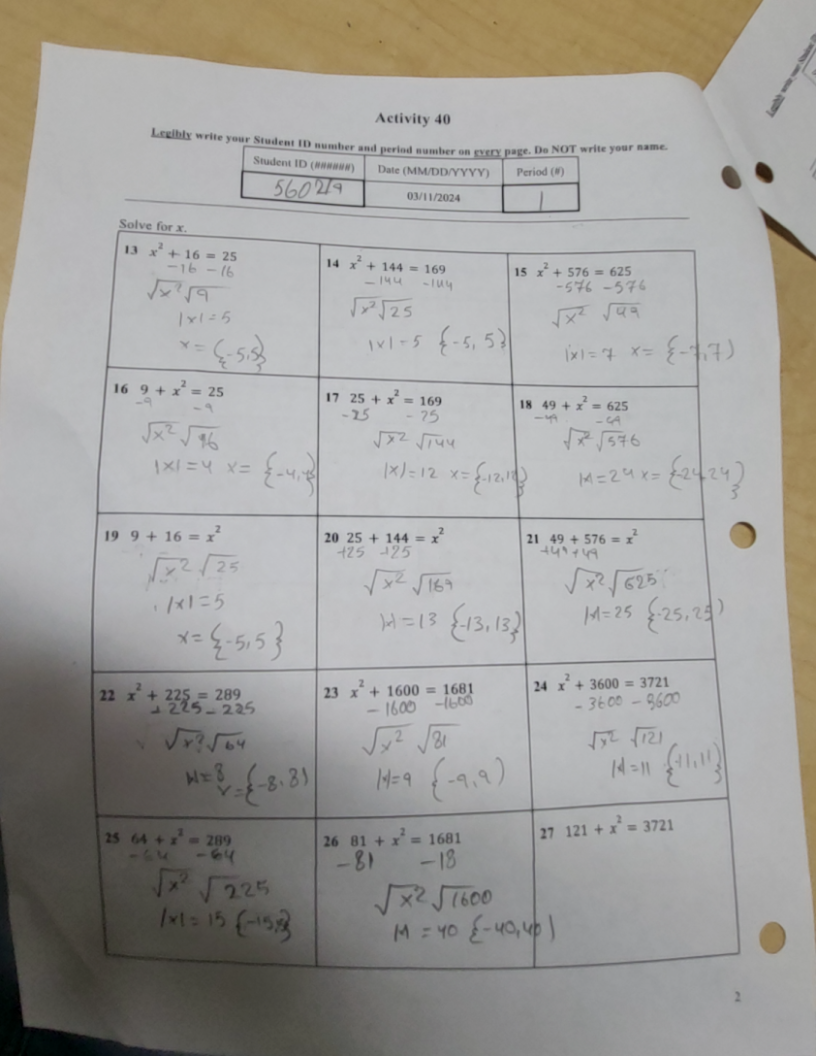 Activity 40
Legibly write your Student ID number and period number on every page. Do NOT write your name.
Student ID (######) Date (MM/DD/YYYY) Period (#)
560219 03/11/2024 1
Solve for x.
13 x² + 16 = 25
-16 -16
√x² √9
|x| = 5
x = {-5,5}
14 x² + 144 = 169
-144 -144
√x² √25
|x| = 5 {-5, 5}
15 x² + 576 = 625
-576 -576
√x² √49
|x| = 7 x = {-7,7)
16 9 + x² = 25
-9 -9
√x² √16
|x| = 4 x = {-4,4}
17 25 + x² = 169
-25 -25
√x² √144
|x| = 12 x = {-12,12}
18 49 + x² = 625
-49 -49
√x² √576
|x| = 24 x = {-24,24}
19 9 + 16 = x²
√x² √25
|x| = 5
x = {-5,5}
20 25 + 144 = x²
+25 +25
√x² √169
|x| = 13 {-13,13}
21 49 + 576 = x²
+49 +49
√x² √625
|x| = 25 {-25,25)
22 x² + 225 = 289
-225 -225
√x² √64
|x| = 8
x = {-8,8)
23 x² + 1600 = 1681
-1600 -1600
√x² √81
|x| = 9 {-9,9)
24 x² + 3600 = 3721
-3600 -3600
√x² √121
|x| = 11 {-11,11}
25 64 + x² = 289
-64 -64
√x² √225
|x| = 15
26 81 + x² = 1681
-81 -18
√x² √1600
|x| = 40 {-40,40)
27 121 + x² = 3721
2